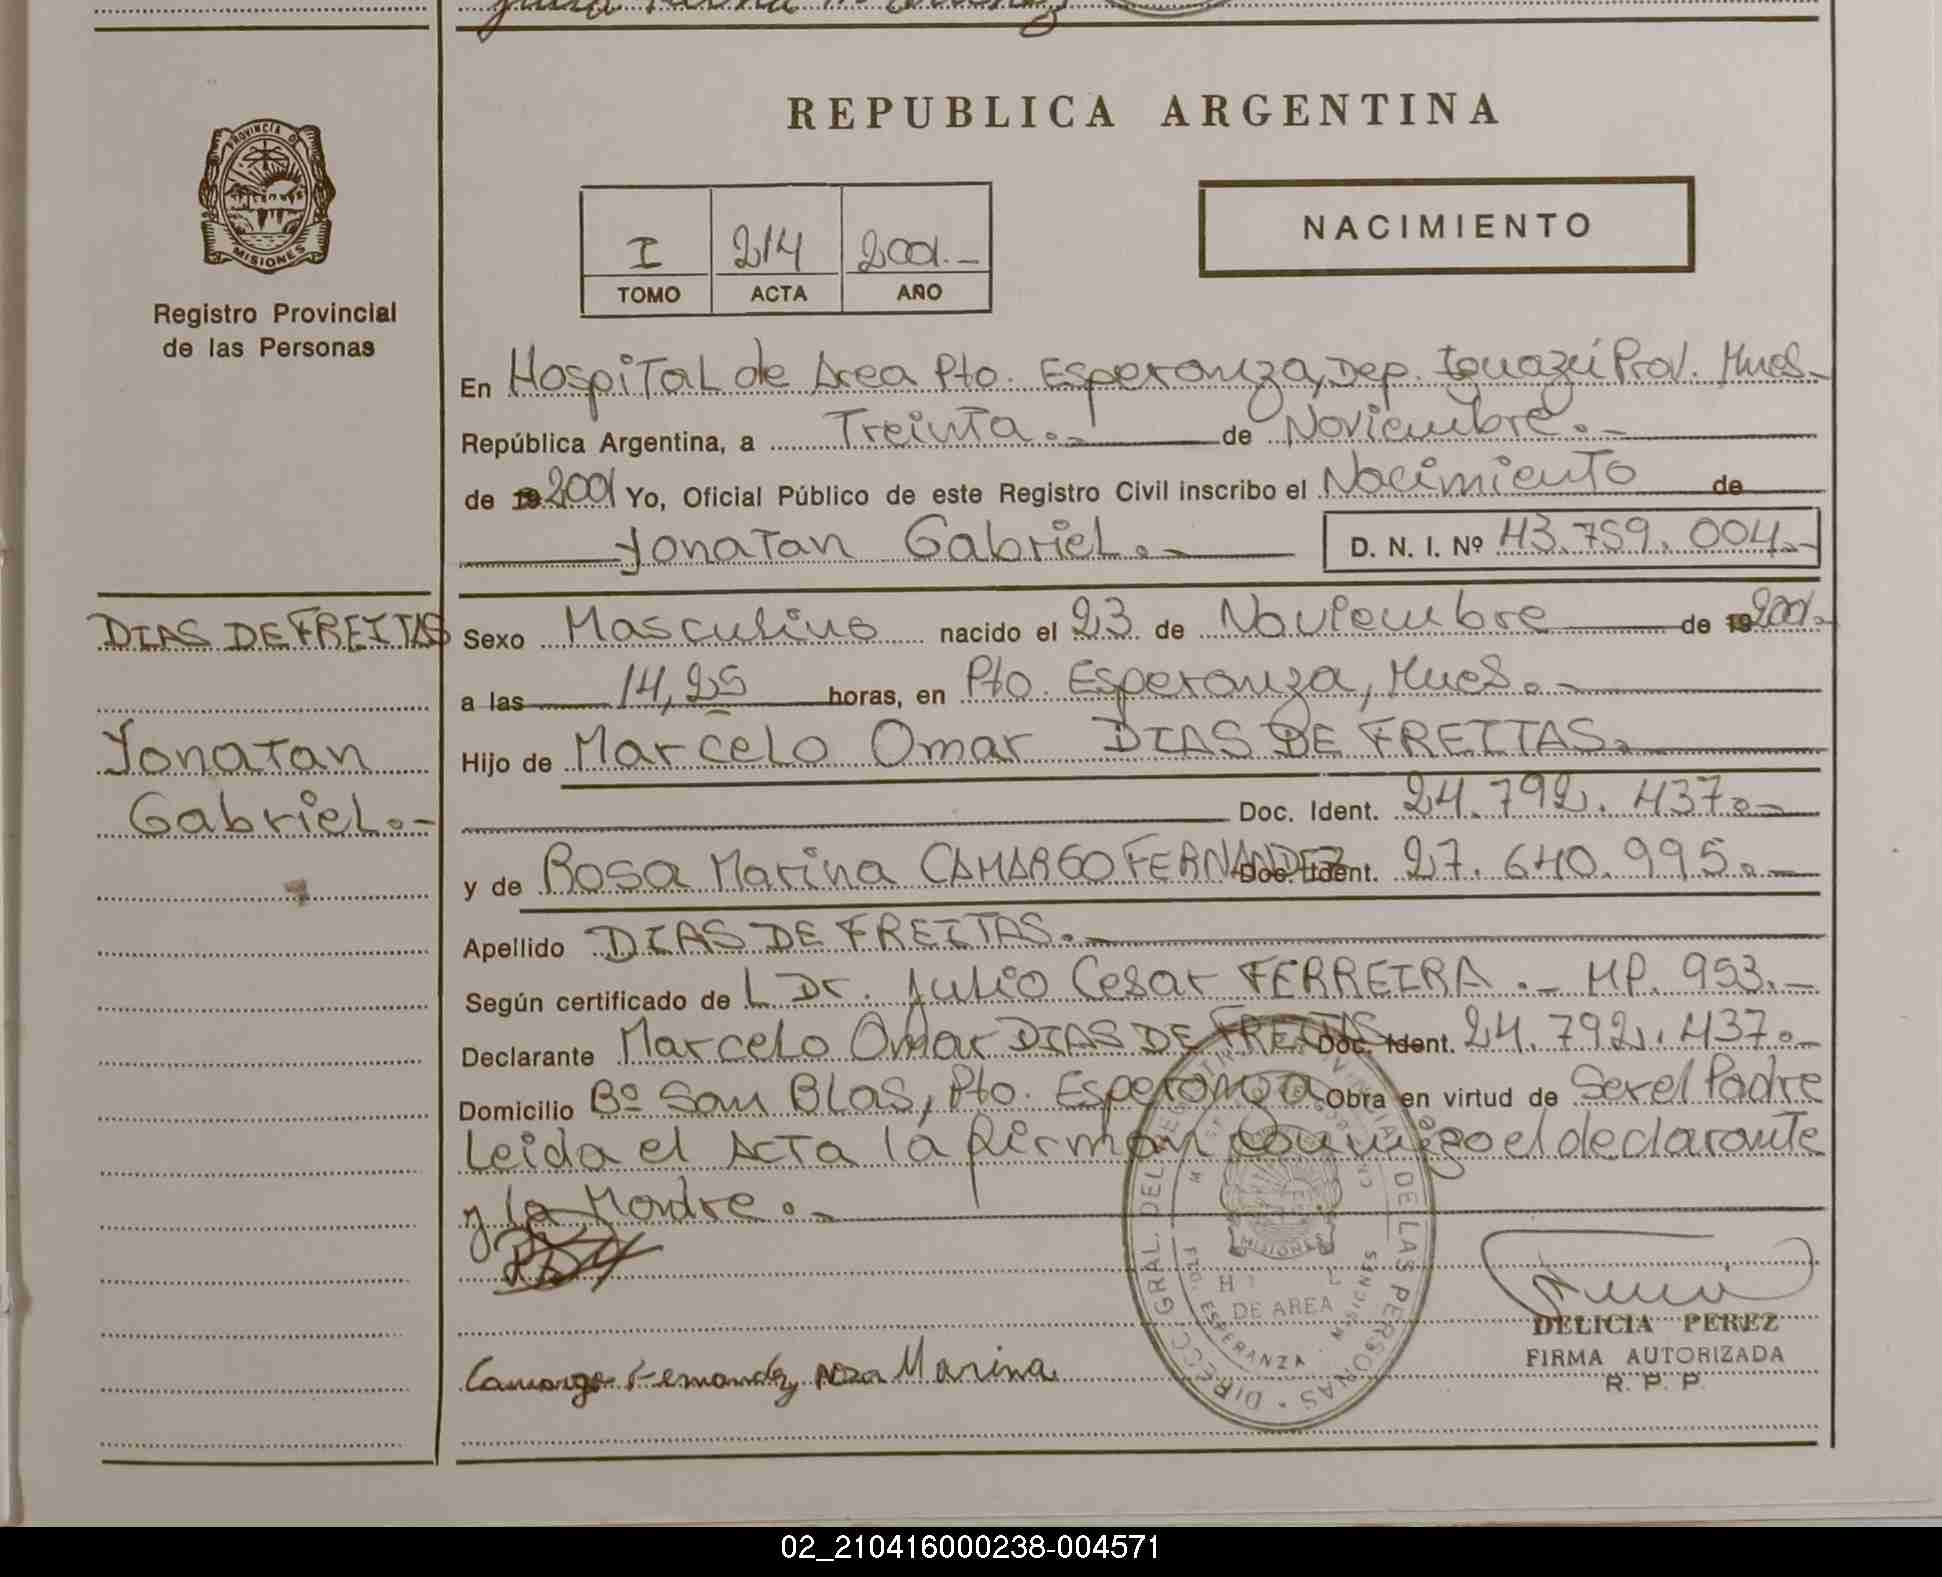 REPUBLICA ARGENTINA
PROVINCIA DE
MISIONES
Registro Provincial
de las Personas
I 214 2001.-
TOMO ACTA AÑO
NACIMIENTO
En Hospital de Area Pto. Esperanza, Dep. Iguazú Prov. Mnes.-
República Argentina, a Treinta.- de Noviembre.-
de 19 2001 Yo, Oficial Público de este Registro Civil inscribo el Nacimiento de
Yonatan Gabriel.- D. N. I. Nº 43.759.004.-
DIAS DE FREITAS
Yonatan
Gabriel.-
Sexo Masculino nacido el 23 de Noviembre de 19 2001.-
a las 14,25 horas, en Pto. Esperanza, Mnes.-
Hijo de Marcelo Omar DIAS DE FREITAS.
Doc. Ident. 24.792.437.-
y de Rosa Marina CAMARGO FERNANDEZ Doc. Ident. 27.640.995.-
Apellido DIAS DE FREITAS.-
Según certificado de L Dr. Julio Cesar FERREIRA.- MP. 953.-
Declarante Marcelo Omar DIAS DE FREITAS Doc. Ident. 24.792.437.-
Domicilio Bº San Blas, Pto. Esperanza Obra en virtud de Ser el Padre
Leida el Acta la firman conmigo el declarante
y la Madre.-
Camargo Fernandez Rosa Marina
DIRECC GRAL. DEL REGISTRO PROVINCIAL DE LAS PERSONAS
MISIONES
DE AREA
PTO. ESPERANZA - MISIONES
DELICIA PEREZ
FIRMA AUTORIZADA
R. P. P.
02_210416000238-004571